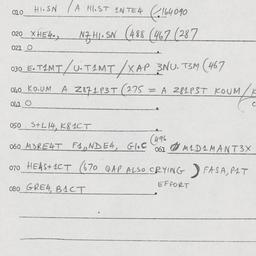 010 HI.SN / A HI.ST INTE4 (.164090
020 XHE4., N7HI.SN (488 (467 (287
021 0
030 E.TIMT / U.TIMT / XAP 3NU.T3M (467
040 KO.UM A Z171P3T (275 = A ZP1P3T KOUM /
041 0
050 S+LI4, K81CT
060 M3RE4T F1,NDE4, GI.C (496 061 M1D1MANT3X
070 HEAS+1CT (670 GAP ALSO CRYING ) FA1A, P1T
EFFORT
080 GRE4, B1CT